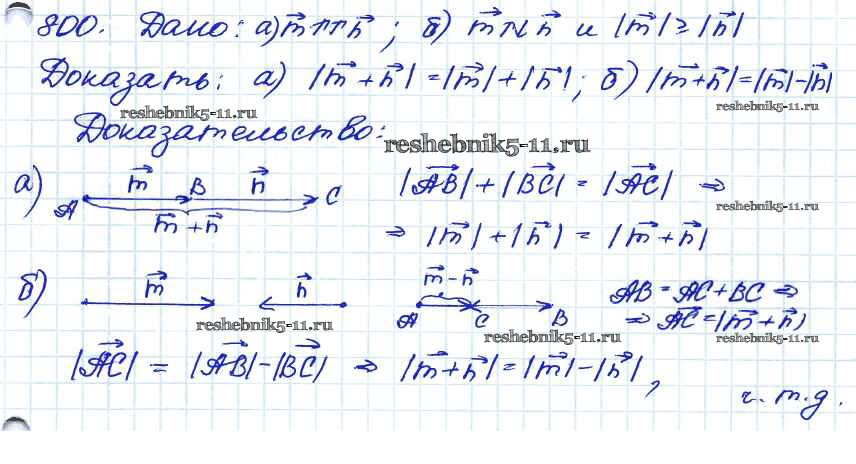 800. Дано: а) m⃗ ↑↑ n⃗ ; б) m⃗ ↑↓ n⃗ и |m⃗| ≥ |n⃗|
Доказать: а) |m⃗ + n⃗| = |m⃗| + |n⃗|; б) |m⃗ + n⃗| = |m⃗| - |n⃗|
reshebnik5-11.ru
reshebnik5-11.ru
Доказательство:
reshebnik5-11.ru
а) m⃗ n⃗
A B C
m⃗ + n⃗
|AB⃗| + |BC⃗| = |AC⃗| ⇒
reshebnik5-11.ru
⇒ |m⃗| + |n⃗| = |m⃗ + n⃗|
б) m⃗ n⃗
m⃗ - n⃗
A C B
AB = AC + BC ⇒
⇒ AC⃗ = |m⃗ + n⃗)
reshebnik5-11.ru
reshebnik5-11.ru
reshebnik5-11.ru
|AC⃗| = |AB⃗| - |BC⃗| ⇒ |m⃗ + n⃗| = |m⃗| - |n⃗|,
ч. т. д.